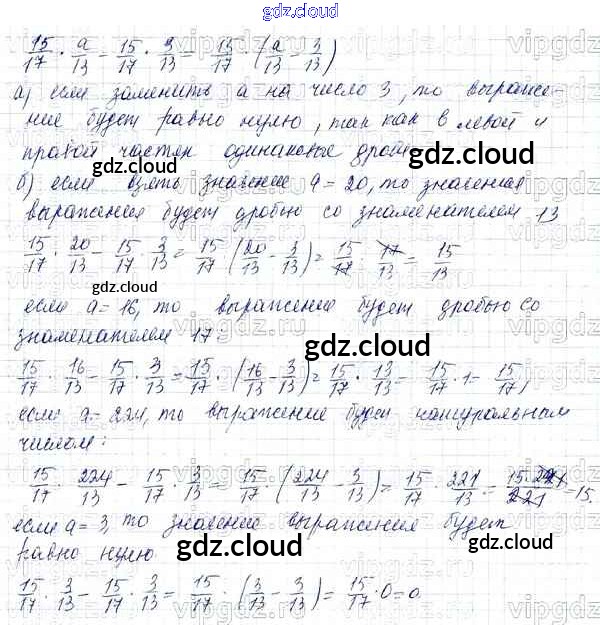 gdz.cloud
15/17 · a/13 - 15/17 · 3/13 = 15/17 · (a/13 - 3/13)
а) если заменить a на число 3, то выраже-
ние будет равно нулю, так как в левой и
правой частях одинаковые дроби
gdz.cloud
б) если взять значение a = 20, то значения
выражения будет дробью со знаменателем 13
15/17 · 20/13 - 15/17 · 3/13 = 15/17 · (20/13 - 3/13) = 15/17 · 17/13 = 15/13
gdz.cloud
если a = 16, то выражение будет дробью со
знаменателем 17:
gdz.cloud
15/17 · 16/13 - 15/17 · 3/13 = 15/17 · (16/13 - 3/13) = 15/17 · 13/13 = 15/17 · 1 = 15/17,
если a = 224, то выражение будет натуральным
числом:
gdz.cloud
15/17 · 224/13 - 15/17 · 3/13 = 15/17 · (224/13 - 3/13) = 15/17 · 221/13 = 15·221/221 = 15.
если a = 3, то значение выражения будет
равно нулю
gdz.cloud
15/17 · 3/13 - 15/17 · 3/13 = 15/17 · (3/13 - 3/13) = 15/17 · 0 = 0